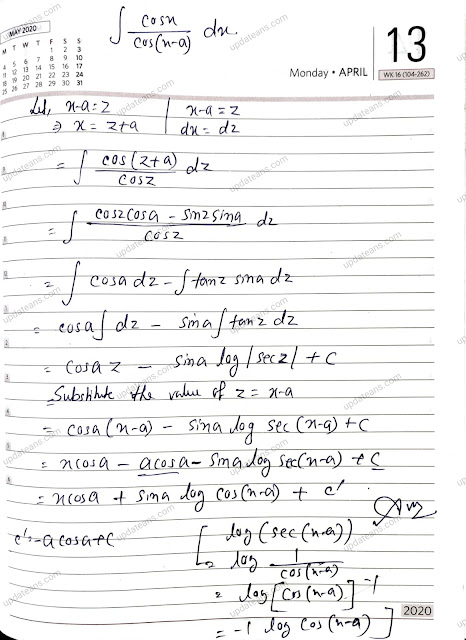 MAY 2020
M T W T F S S
1 2 3
4 5 6 7 8 9 10
11 12 13 14 15 16 17
18 19 20 21 22 23 24
25 26 27 28 29 30 31
∫ cosx / cos(x-a) dx.
13
Monday • APRIL
WK 16 (104-262)
Let, x-a = z | x-a = z
⇒ x = z+a | dx = dz
= ∫ cos(z+a) / cosz dz
= ∫ coszcosa - sinzsina / cosz dz
= ∫ cosa dz - ∫ tanz sina dz
= cosa ∫ dz - sina ∫ tanz dz
= cosa z - sina log |secz| + c
Substitute the value of z = x-a
= cosa (x-a) - sina log sec (x-a) + c
= xcosa - acosa - sina log sec(x-a) + c
= xcosa + sina log cos(x-a) + c'
Ans
c' = -acosa+c
[ log (sec(x-a))
= log 1 / cos(x-a)
= log [cos(x-a)]^-1
= -1 log cos(x-a) ]
2020
updateans.com